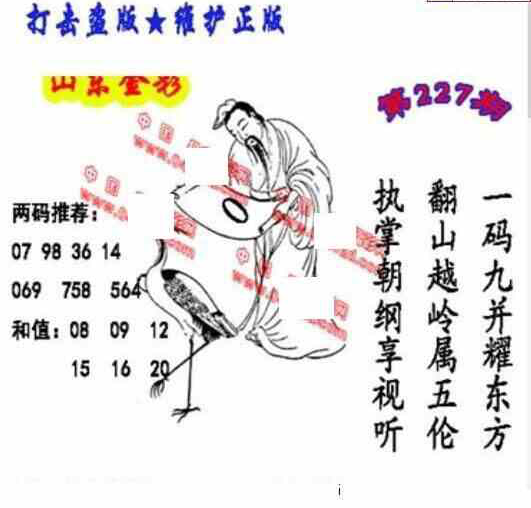 打击盗版★维护正版
山东金彩
第227期
一码九并耀东方
翻山越岭属五伦
执掌朝纲享视听
两码推荐：
07 98 36 14
069 758 564
和值：08 09 12
15 16 20
0